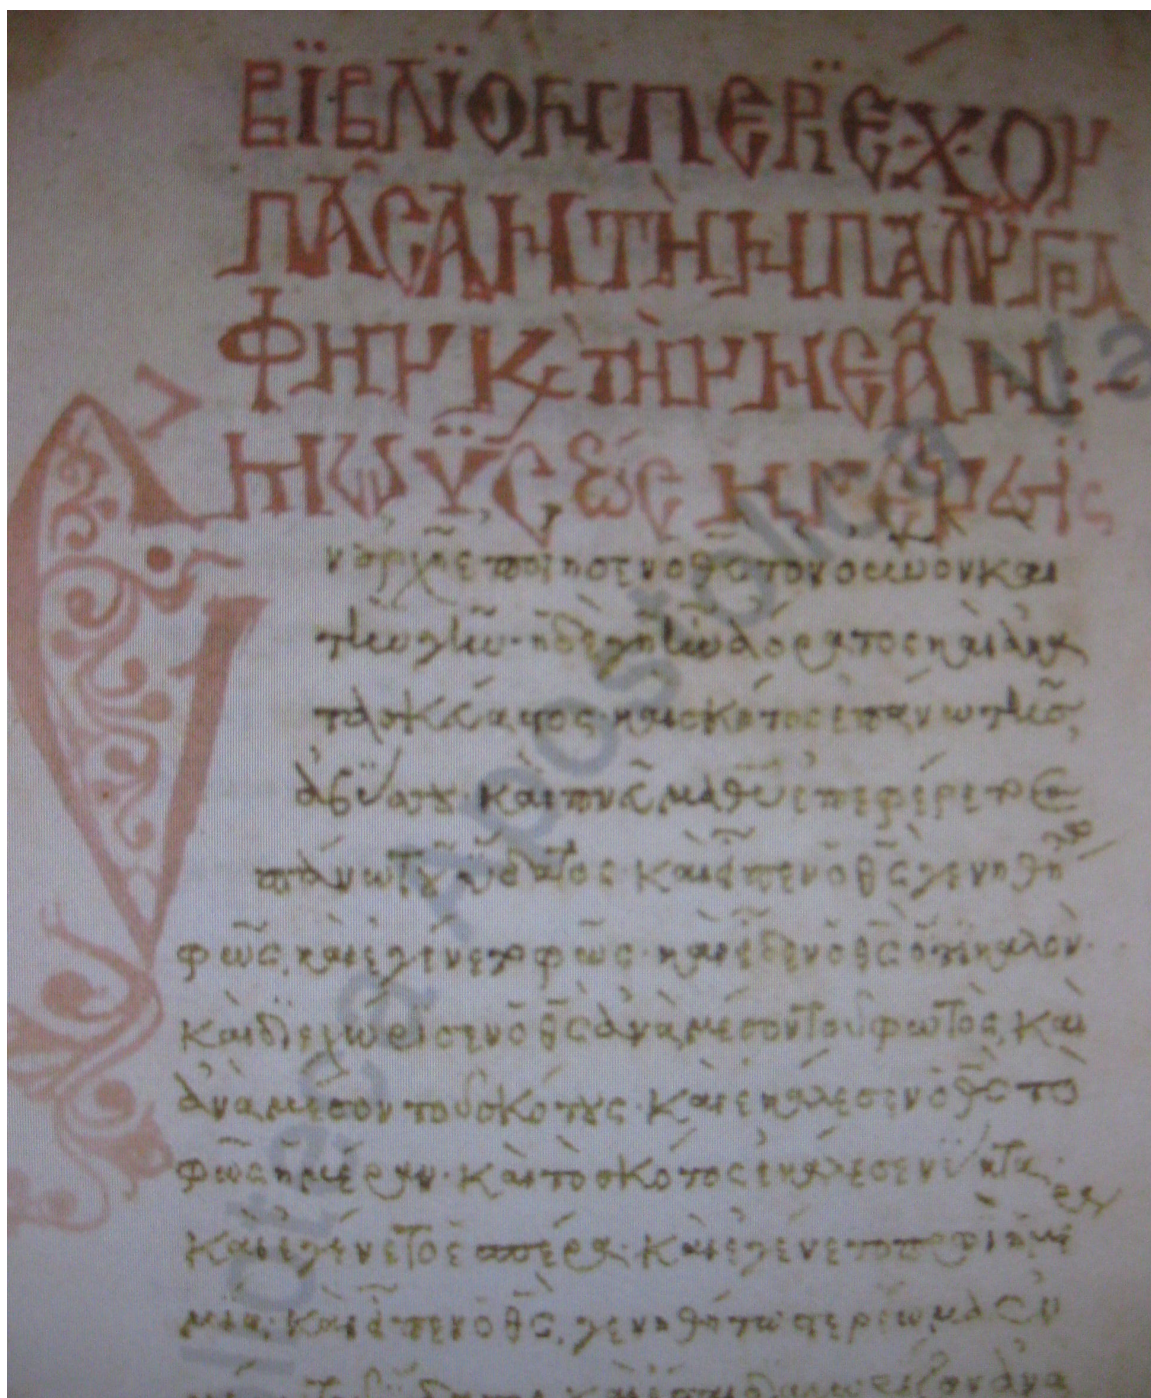 ΒΪΒΛΪΟΝ ΠΕΡΪΈΧΟΝ
ΠΑ͂ΣΑΝ ΤῊΝ ΠΑΛ ΓΡΑ
ΦΗΝ Κ ΤῊΝ ΝΕΑΝ:
ΜΩΫΣΕΩΣ
ν ἀρχῆ ἐποίησεν ὁ θς τὸν οὐνον καὶ
τὴν γῆν· ἡ δὲ γῆ ἦν ἀόρατος καὶ ἀκα
καὶ σκότος ἐπάνω τῆς
ἀβύσσου· καὶ πνα θυ ἐπεφέρετο ἐ
πάνω τοῦ ὕδατος· καὶ εἶπεν ὁ θς γενηθή
φῶς, καὶ ἐγένετο φῶς· καὶ ἶδεν ὁ θς ὅτι καλόν·
καὶ διεχώρισεν ὁ θς ἀνὰ μέσον τοῦ φωτὸς, καὶ
ἀνὰ μέσον τοῦ σκότους· καὶ ἐκάλεσεν ὁ θς τὸ
φῶς ἡμέραν· καὶ τὸ σκότος ἐκάλεσεν νύκτα·
καὶ ἐγένετο ἑσπέρα· καὶ ἐγένετο πρωὶ ἡμέ
μία· καὶ εἶπεν ὁ θς, γενηθήτω στερέωμα